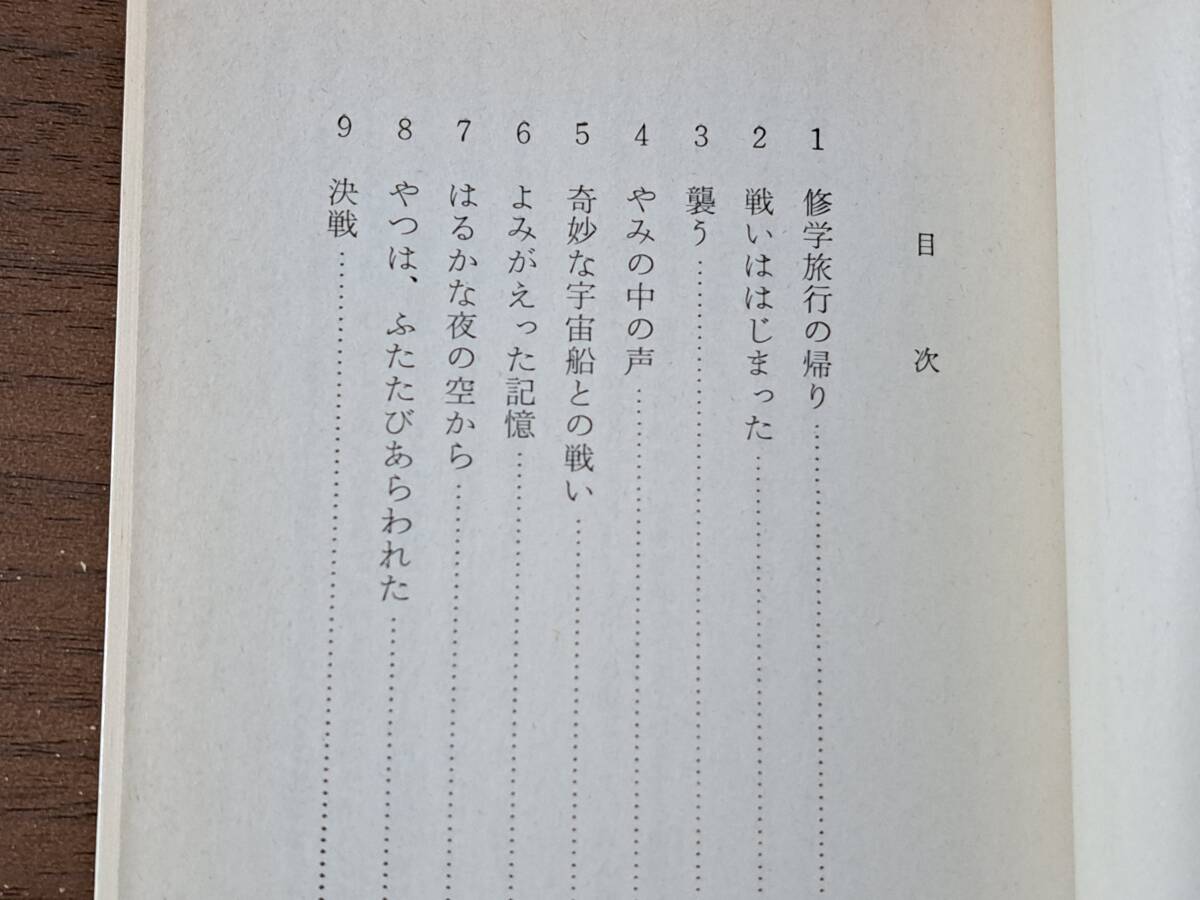 目次
1 修学旅行の帰り
2 戦いははじまった
3 襲う
4 やみの中の声
5 奇妙な宇宙船との戦い
6 よみがえった記憶
7 はるかな夜の空から
8 やつは、ふたたびあらわれた
9 決戦